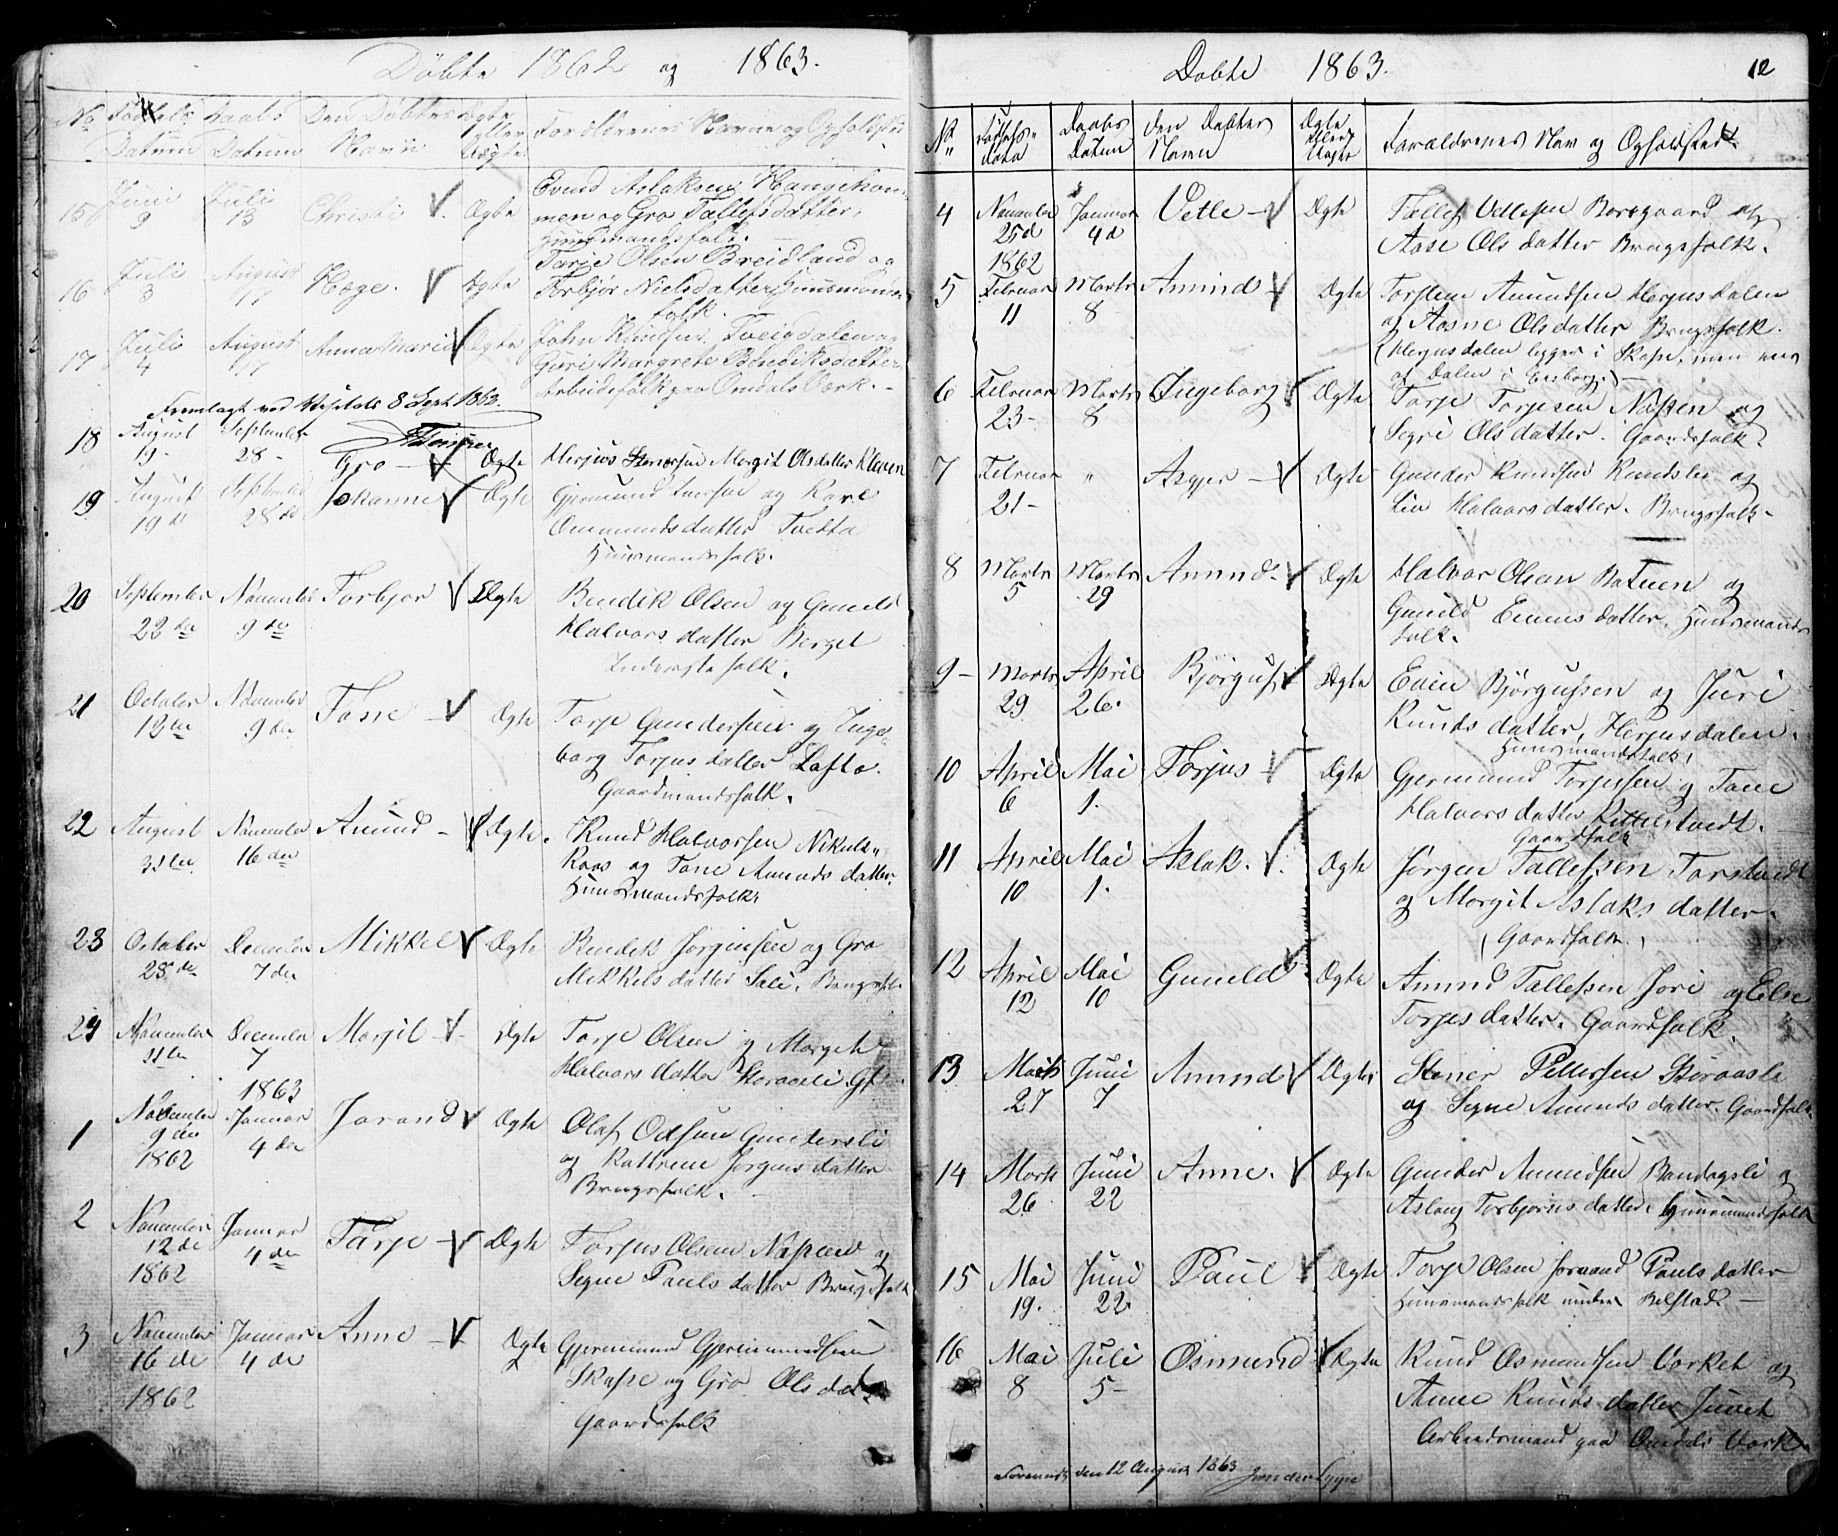 Döbte 1862 og 1863.
No Födsels Datum Daabs Datum Den Döbtes Navn Ægte eller Uægte Forældrenes Navne og Opholdsted
15 Juni 9 Juli 13 Christi Ægte Evind Aslaksen Haugekom-
men og Gro Tallefsdatter,
Huusmandsfolk.
16 Juli 3 August 17 Hæge. Ægte Tarje Olsen Breidland og
Torbjør Nielsdatter Huusmands
folk
17 Juli 4 August 17 Anne Marie Ægte John Knudsen Tveigdalen og
Guri Margrete Bendiksdatter
Arbeidsfolk paa Omdals Værk.
Fremlagt ved Visitats 8 Sept. 1862.
18 August 19 - September 28 - Gro Ægte Herjus Steinersen Margit Olsdatter Kleven
19 August 19 de September 28 de Johanne Ægte Gjermund Iversen og Kari
Ommundsdatter Tvedta
Huusmandsfolk.
20 September 22 de November 9 de Torbjør Ægte Bendik Olsen og Gunild
Halvorsdatter Berget
Inderstefolk.
21 October 12te November 9 de Tone Ægte Tarje Gundersen og Inge-
borg Torjusdatter Lofto.
Gaardmandsfolk.
22 August 31te November 16 de Amund Ægte. Knud Halvorsen Nikuls-
Raas og Tone Amundsdatter.
Huusmandsfolk.
23 October 28 de December 7 de Mikkel Ægte Bendik Jørginsen og Gro
Mikkelsdatter Sali, Brugsfolk
24 November 11te December 7 Margit Ægte Tarje Olsen og Margit
Halvorsdatter Storaali Gf
1863
1 November 9 de 1862 Januar 4 de Jorand Ægte Olaf Odsun Gundersli
og Kattrine Jørgensdatter
Brugsfolk.
2 November 12 de 1862 Januar 4 de Tarje Ægte Torjus Olsen Næsland og
Segne Paulsdatter Brugsfolk
3 November 16 de 1862 Januar 4 de Anne Ægte Gjermund Gjermundsen
Skafse og Gro Olsdatter
Gaardsfolk
Døbte 1863.
12
No Fødsels Dato Daabs Datum Den Døbtes Navn Ægte eller Uægte Foreldrenes Nav og Opholdsted
4 November 25d 1862 Januar 4 d Vetle Ægte Tallef Vetlesen Borsgaard og
Aase Olsdatter Brugsfolk.
5 Februar 11 Marts 8 Amund Ægte Torsten Amundsen Herjusdalen
og Aasne Olsdatter Brugsfolk.
(Herjusdalen ligger i Skafse, men
af Dalen i Eidsborg.)
6 Februar 23- Marts 8 Ingeborg Ægte Tarje Torjesen Næssen og
Segri Olsdatter. Gaardsfolk.
7 Februar 21- " Asgjer Ægte Gunder Knudsen Kundsli og
Liv Halvorsdatter. Brugsfolk.
8 Marts 5 Marts 29 Amund Ægte Halvor Olsen Batuen og
Gunild Evensdatter. Huusmands
folk.
9- Marts 29 April 26. Bjørguf Ægte Evin Bjørgufsen og Juri
Knudsdatter, Herjusdalen.
Huusmandsfolk.
10 April 6 Mai 1. Torjus Ægte Gjermund Torjussen og Tone
Halvorsdatter Kittilstvedt.
Gaardsfolk
11 April 10 Mai 1. Aslak. Ægte Jørgen Tallefsen Torstvedt
og Margit Aslaksdatter.
(Gaardsfolk.)
12 April 12 Mai 10 Gunild Ægte Amund Tallefsen Jore og Else
Torjesdatter. Gaardsfolk.
13 Marts 27 Juni 7 Amund Ægte Stener Pettersen Storaasli
og Segne Amundsdatter. Gaardsfolk
14 Marts 26 Juni 22 Anne. Ægte Gunder Amundsen Bandagsli og
Aslaug Torbjørnsdatter. Huusmandsfolk
15 Mai 19. Juni 22. Paul Ægte Tarje Olsen Jorand Paulsdatter
Huusmandsfolk under Belstad.
16 Mai 8 Juli 5- Osmund Ægte Knud Osmundsen Vorket og
Anne Knudsdatter Juvet
Arbeidsmand paa Omdals Værk
den 12 August 1863